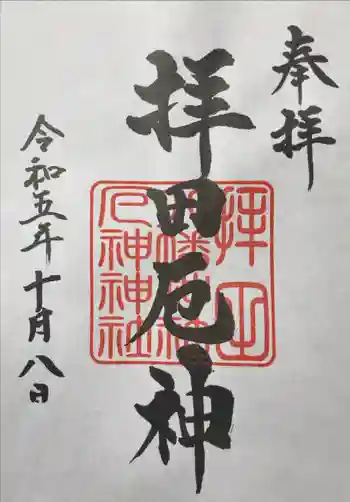 奉拝
拝田厄神
令和五年十月八日
拝田
厄神神社